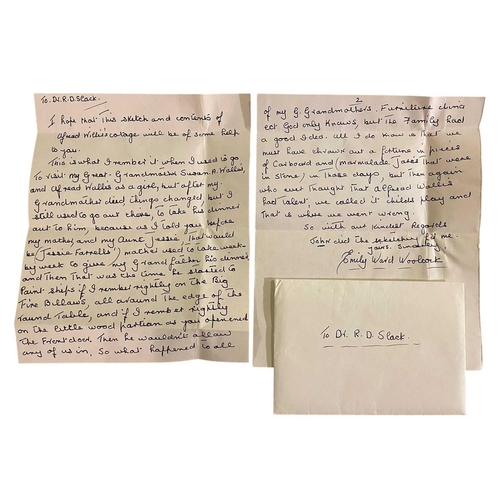 To. Dr. R.D. Slack.
I hope that this sketch and contents of
Alfred Wallis's cotage will be of some help
to you.
This is what I rember it when I used to go
To visit my Great. Grandmother Susan A. Wallis,
and Alfread Wallis as a girl, but after my
Grandmother died, things changed, but I
still used to go out there, to take his dinner
out to him, because as I told you before
my mother, and my Aunt Jessie, that would
be (Jessie Farrells) mother used to take week-
by week to give my Grand father his dinner,
and Then That was the time he started to
Paint ships if I rember rightly on The Big
Fire Bellows, all around The edge of the
round Table, and if I rember rightly
on the little wood partian as you opened
The Front door. Then he wouldn't allow
any of us in, So what happened to all
2
of my G Grandmothers. Furniture
ect God only Knows, but the Family had
a good Idea. All I do know is that we
must have thrown out a fortune in pieces
of Carboard and marmalade Jars that were
in stone, in Those days, but Then again
who ever Thought That Alfread Wallis
had Talent, we called it childs play and
That is where we went wrong.
So with our Kindest Regards
John did the sketching for me.
yours. Sincerley
Emily Ward Woolcock
To Dr. R. D. Slack.